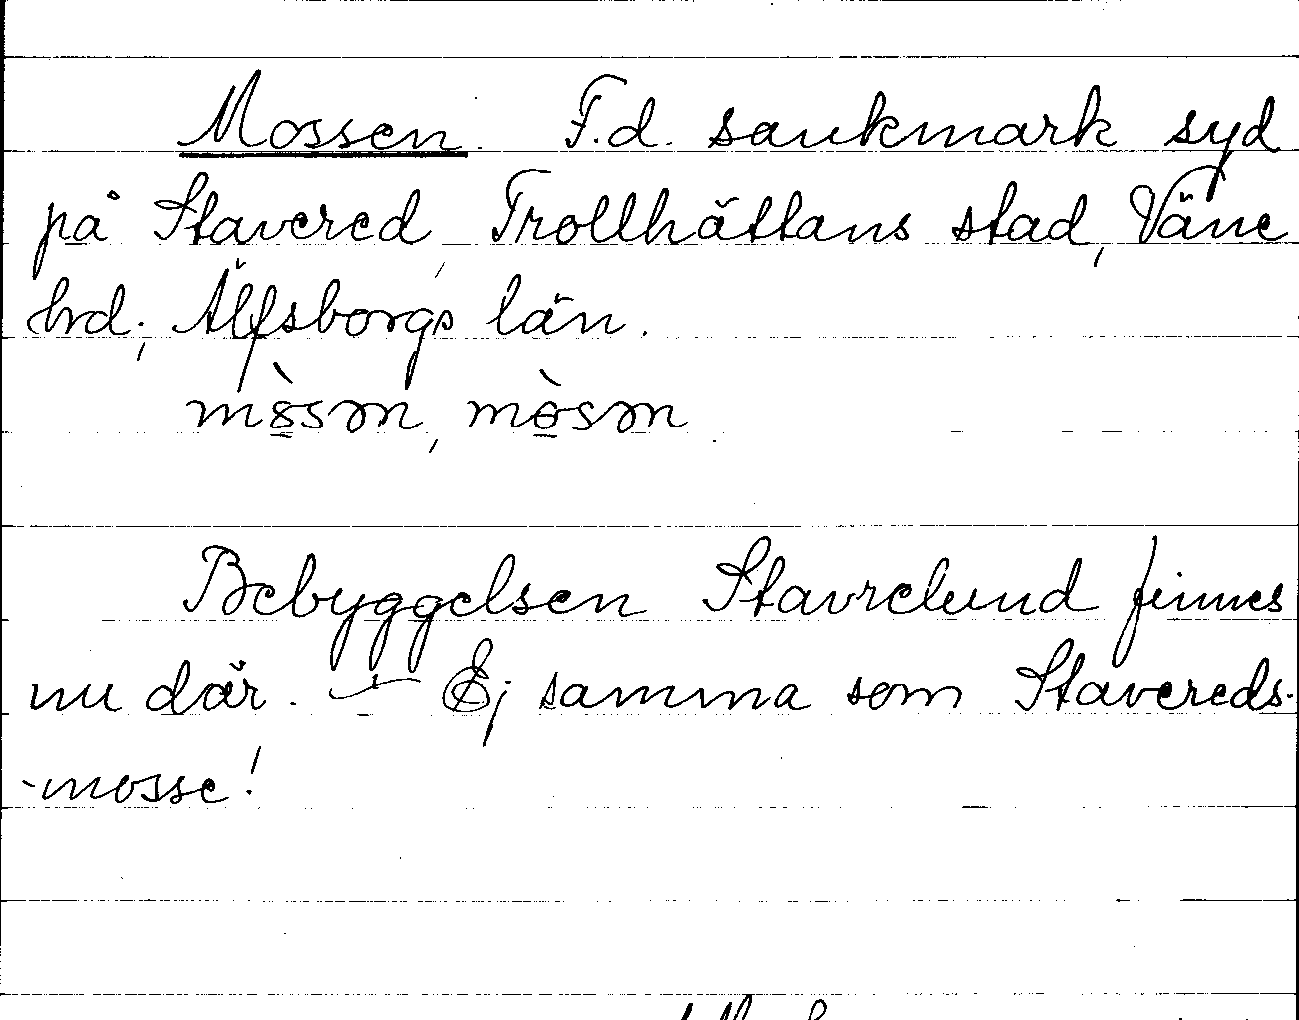 Mossen. F.d. sankmark syd
på Stavered, Trollhättans stad, Väne
hrd; Älfsborgs län.
mòsən, mòsən
Bebyggelsen Stavrelund finnes
nu där. – Ej samma som Stavereds-
-mosse!